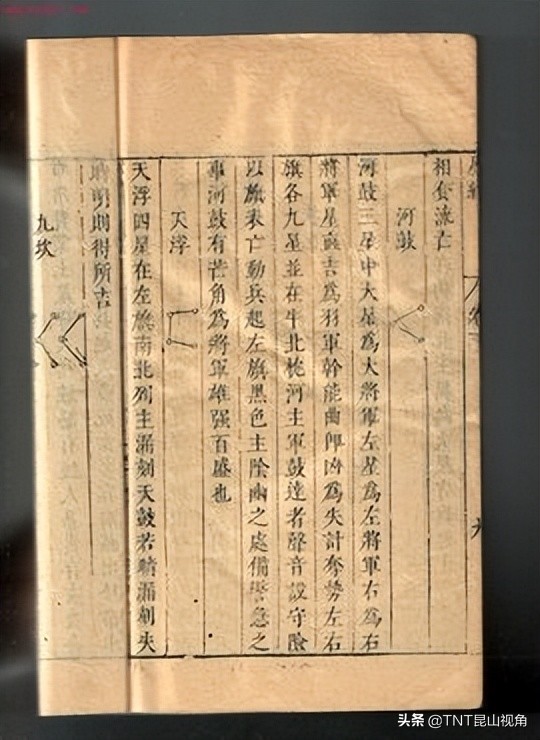 相奪流亡
河鼓
河鼓三星中大星為大將軍左星為左將軍右為右
將軍星直吉為羽軍幹能曲即凶為失計奪勢左右
旗各九星並在牛北枕河主軍鼓達者聲音設守險
以旗表亡動兵起左旗黑色主陰幽之處備警急之
事河鼓有芒角為將軍雄强百盛也
天浮
天浮四星在左旗南北列主漏刻天鼓若暗漏刻失
明則得所吉
九坎
頭条 @TNT昆山视角